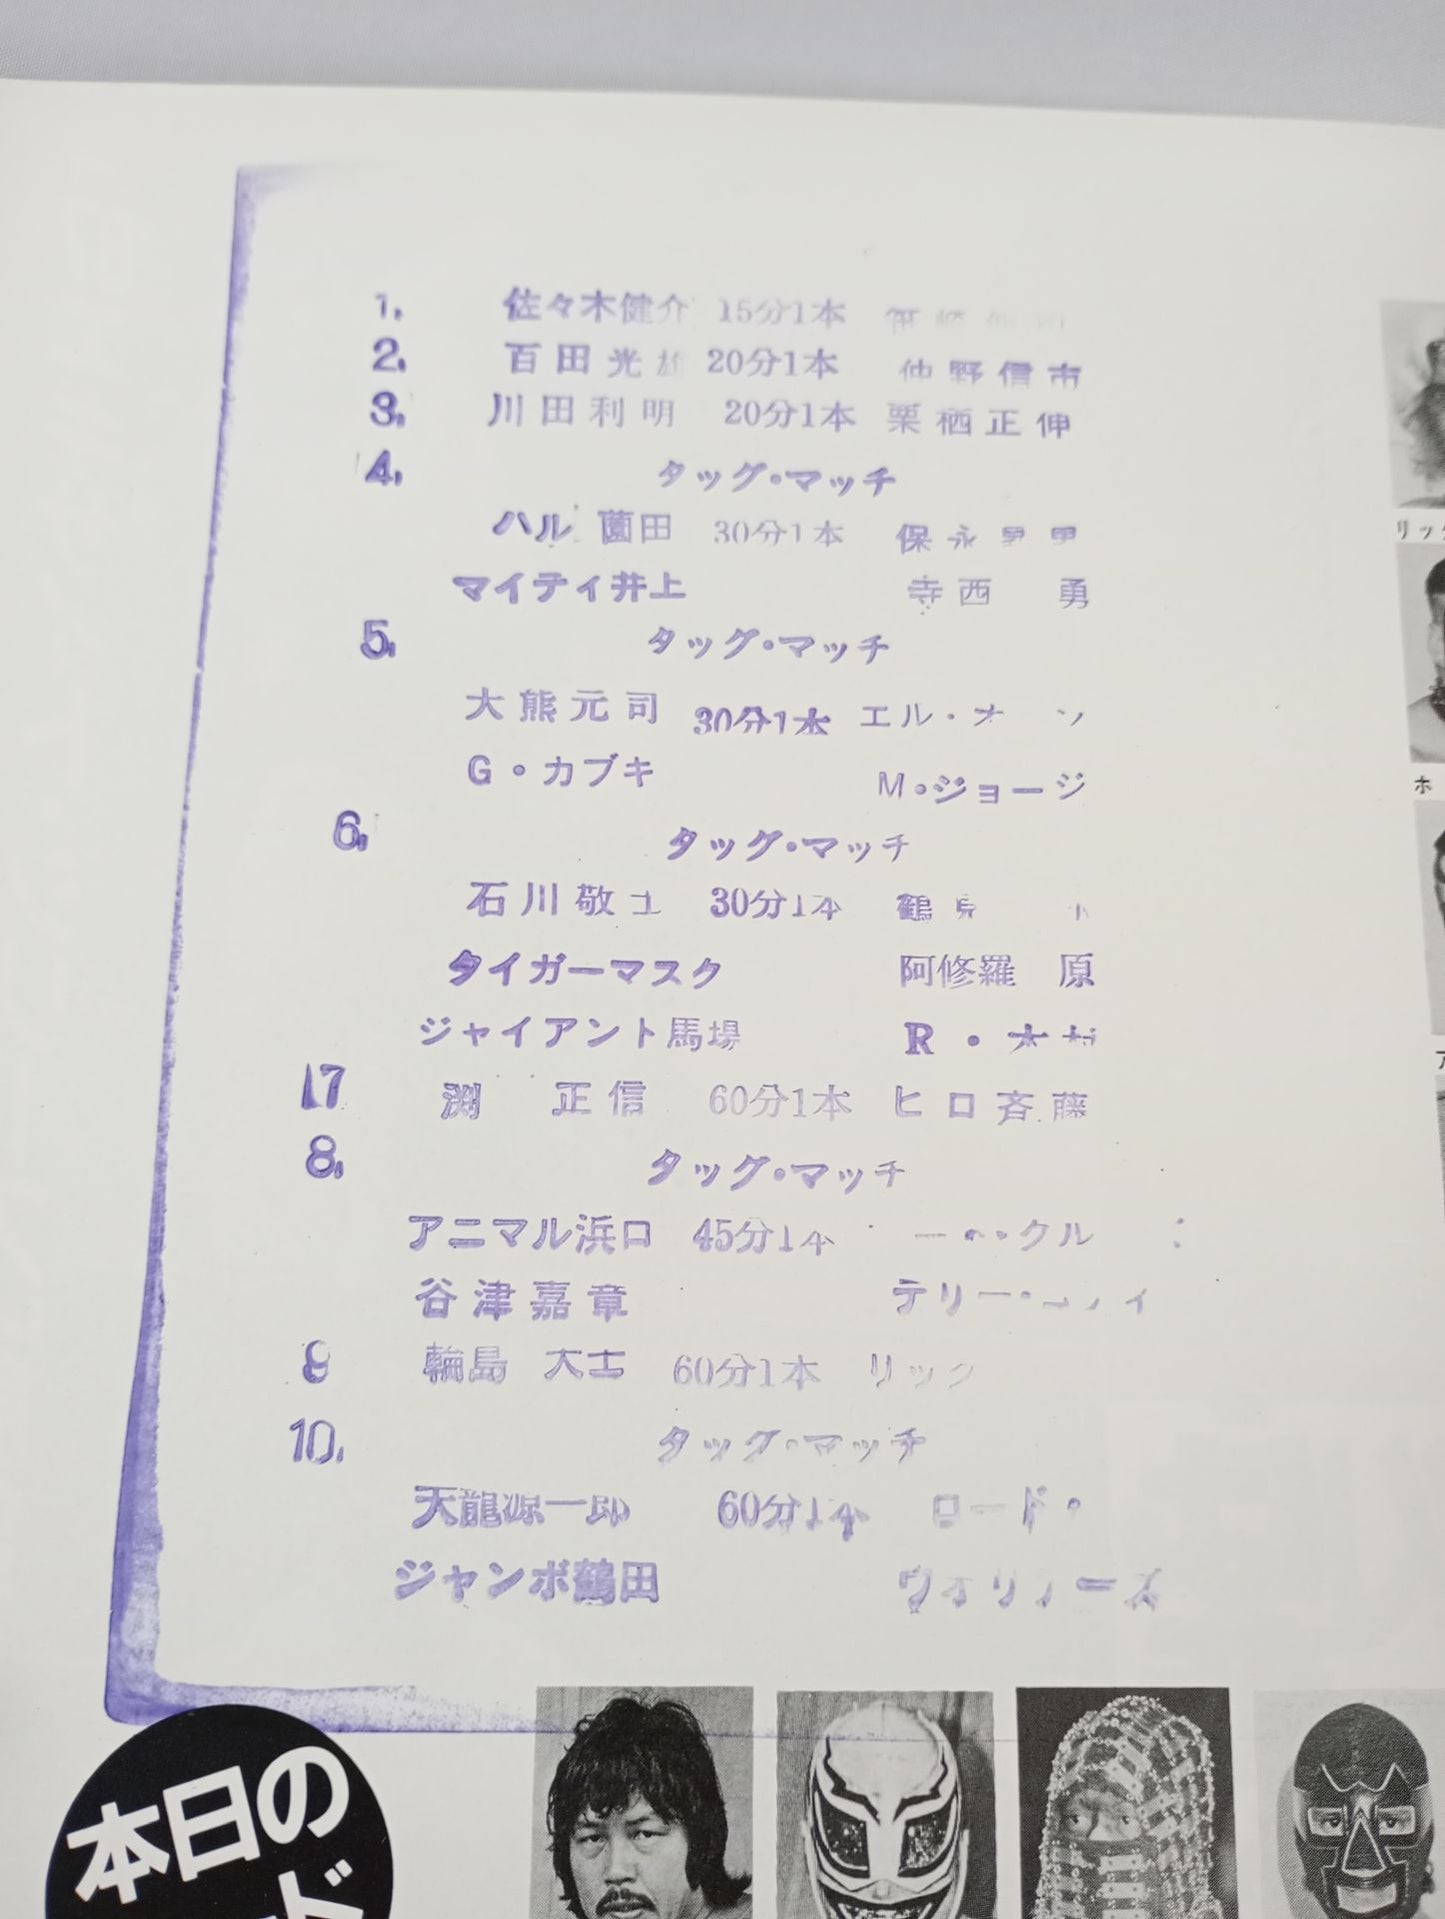 1. 佐々木健介 15分1本
2. 百田光雄 20分1本 仲野信市
3. 川田利明 20分1本 栗栖正伸
4. タッグ・マッチ
ハル薗田 30分1本 保永昇男
マイティ井上 寺西 勇
5. タッグ・マッチ
大熊元司 30分1本 エル・
G・カブキ M・ジョージ
6. タッグ・マッチ
石川敬士 30分1本 鶴見
タイガーマスク 阿修羅 原
ジャイアント馬場 R・木村
7 渕 正信 60分1本 ヒロ斉藤
8. タッグ・マッチ
アニマル浜口 45分1本
谷津嘉章 テリー・
9 輪島 大士 60分1本 リック
10. タッグ・マッチ
天龍源一郎 60分1本 ロード・
ジャンボ鶴田 ウォリアーズ
本日の
リッ
ホ